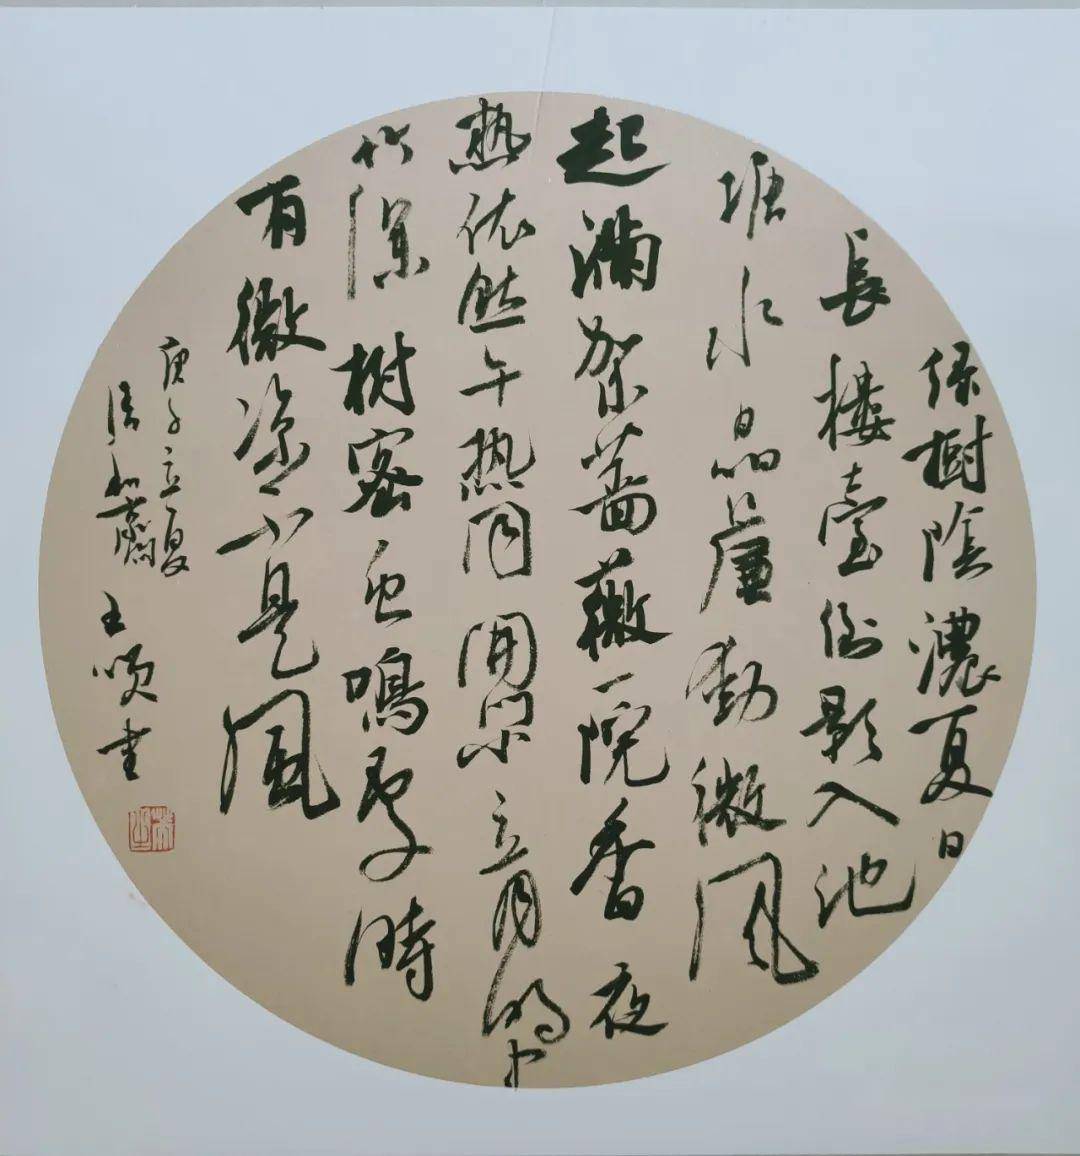 綠樹陰濃夏日
長樓臺倒影入池
塘水晶簾動微風
起滿架薔薇一院香夜
熱依然午熱同開門立月明中
竹深樹密虫鳴處時
有微涼不是風
庚子立夏
和齋王書